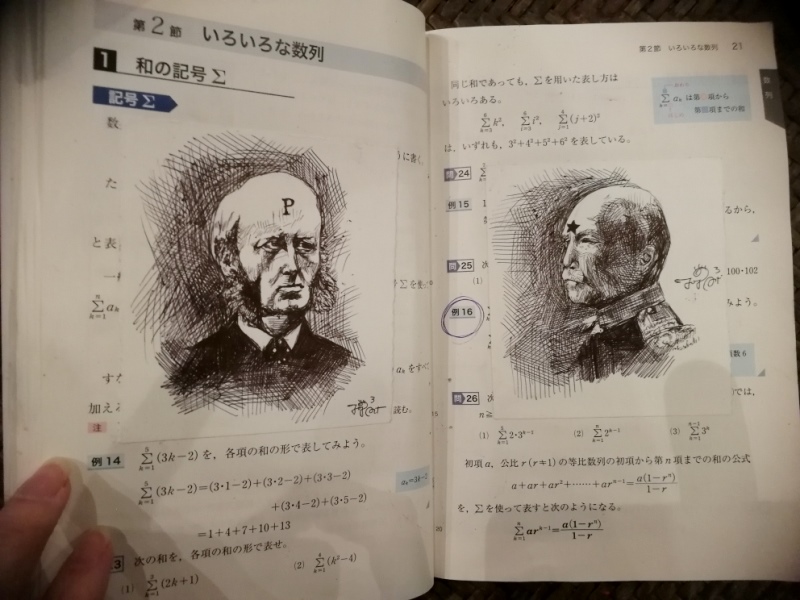 第2節 いろいろな数列
1 和の記号Σ
記号Σ
数
た
と表
P
すた
加え
注
読む。
例14 $\sum_{k=1}^{5}(3k-2)$ を，各項の和の形で表してみよう。
$\sum_{k=1}^{5}(3k-2)=(3\cdot1-2)+(3\cdot2-2)+(3\cdot3-2)$
$+(3\cdot4-2)+(3\cdot5-2)$
$=1+4+7+10+13$
次の和を，各項の和の形で表せ。
(1) $\sum_{k=1}^{3}(2k+1)$ (2) $\sum_{k=1}^{4}(k^2-4)$
第2節 いろいろな数列 21
数列
同じ和であっても，Σを用いた表し方は
いろいろある。
$\sum_{k=3}^{6}k^2$， $\sum_{i=3}^{6}i^2$， $\sum_{j=1}^{4}(j+2)^2$
は，いずれも，$3^2+4^2+5^2+6^2$ を表している。
問24
例15 1
るから，
問25 次
100・102
(1)
みよう。
例16
問26 次
では，
(1) $\sum_{k=1}^{n}2\cdot3^{k-1}$ (2) $\sum_{k=1}^{n}2^{k-1}$ (3) $\sum_{k=1}^{n-1}3^k$
初項 a，公比 r (r≠1) の等比数列の初項から第 n 項までの和の公式
$a+ar+ar^2+\cdots\cdots+ar^{n-1}=\frac{a(1-r^n)}{1-r}$
を，Σを使って表すと次のようになる。
$\sum_{k=1}^{n}ar^{k-1}=\frac{a(1-r^n)}{1-r}$